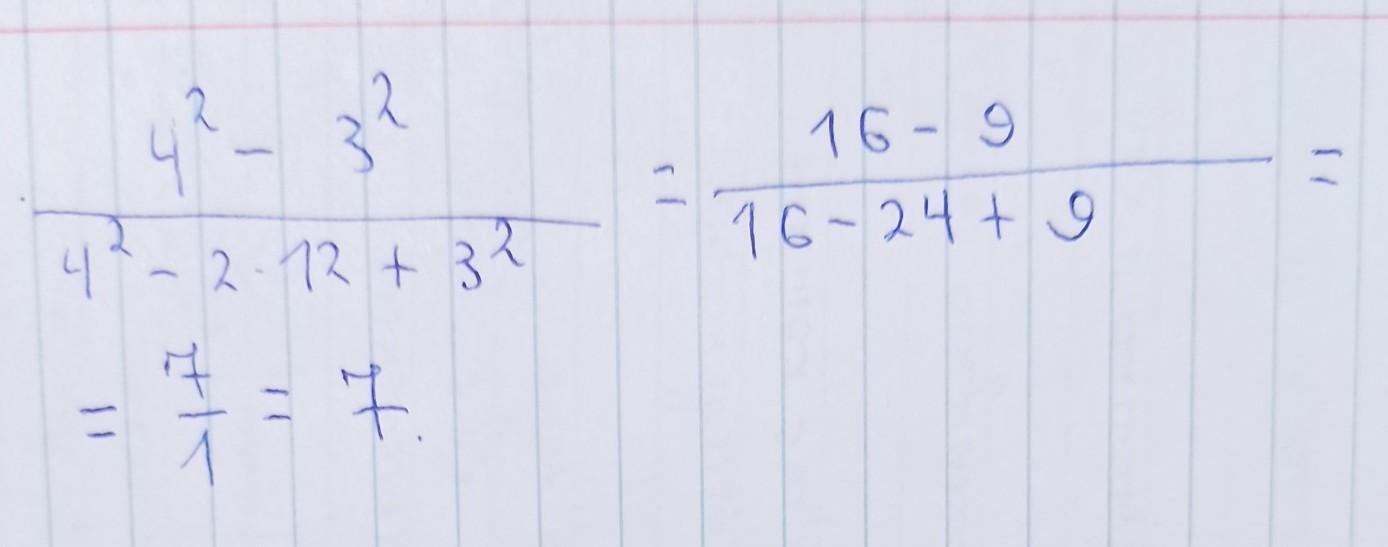 4² - 3² / 4² - 2 · 12 + 3² = 16 - 9 / 16 - 24 + 9 =
= 7/1 = 7.